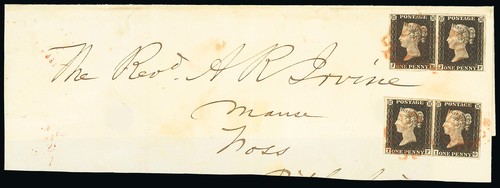 The Revd. A R Irvine
Manse
Foss
POSTAGE
POSTAGE
ONE PENNY
ONE PENNY
POSTAGE
POSTAGE
ONE PENNY
ONE PENNY